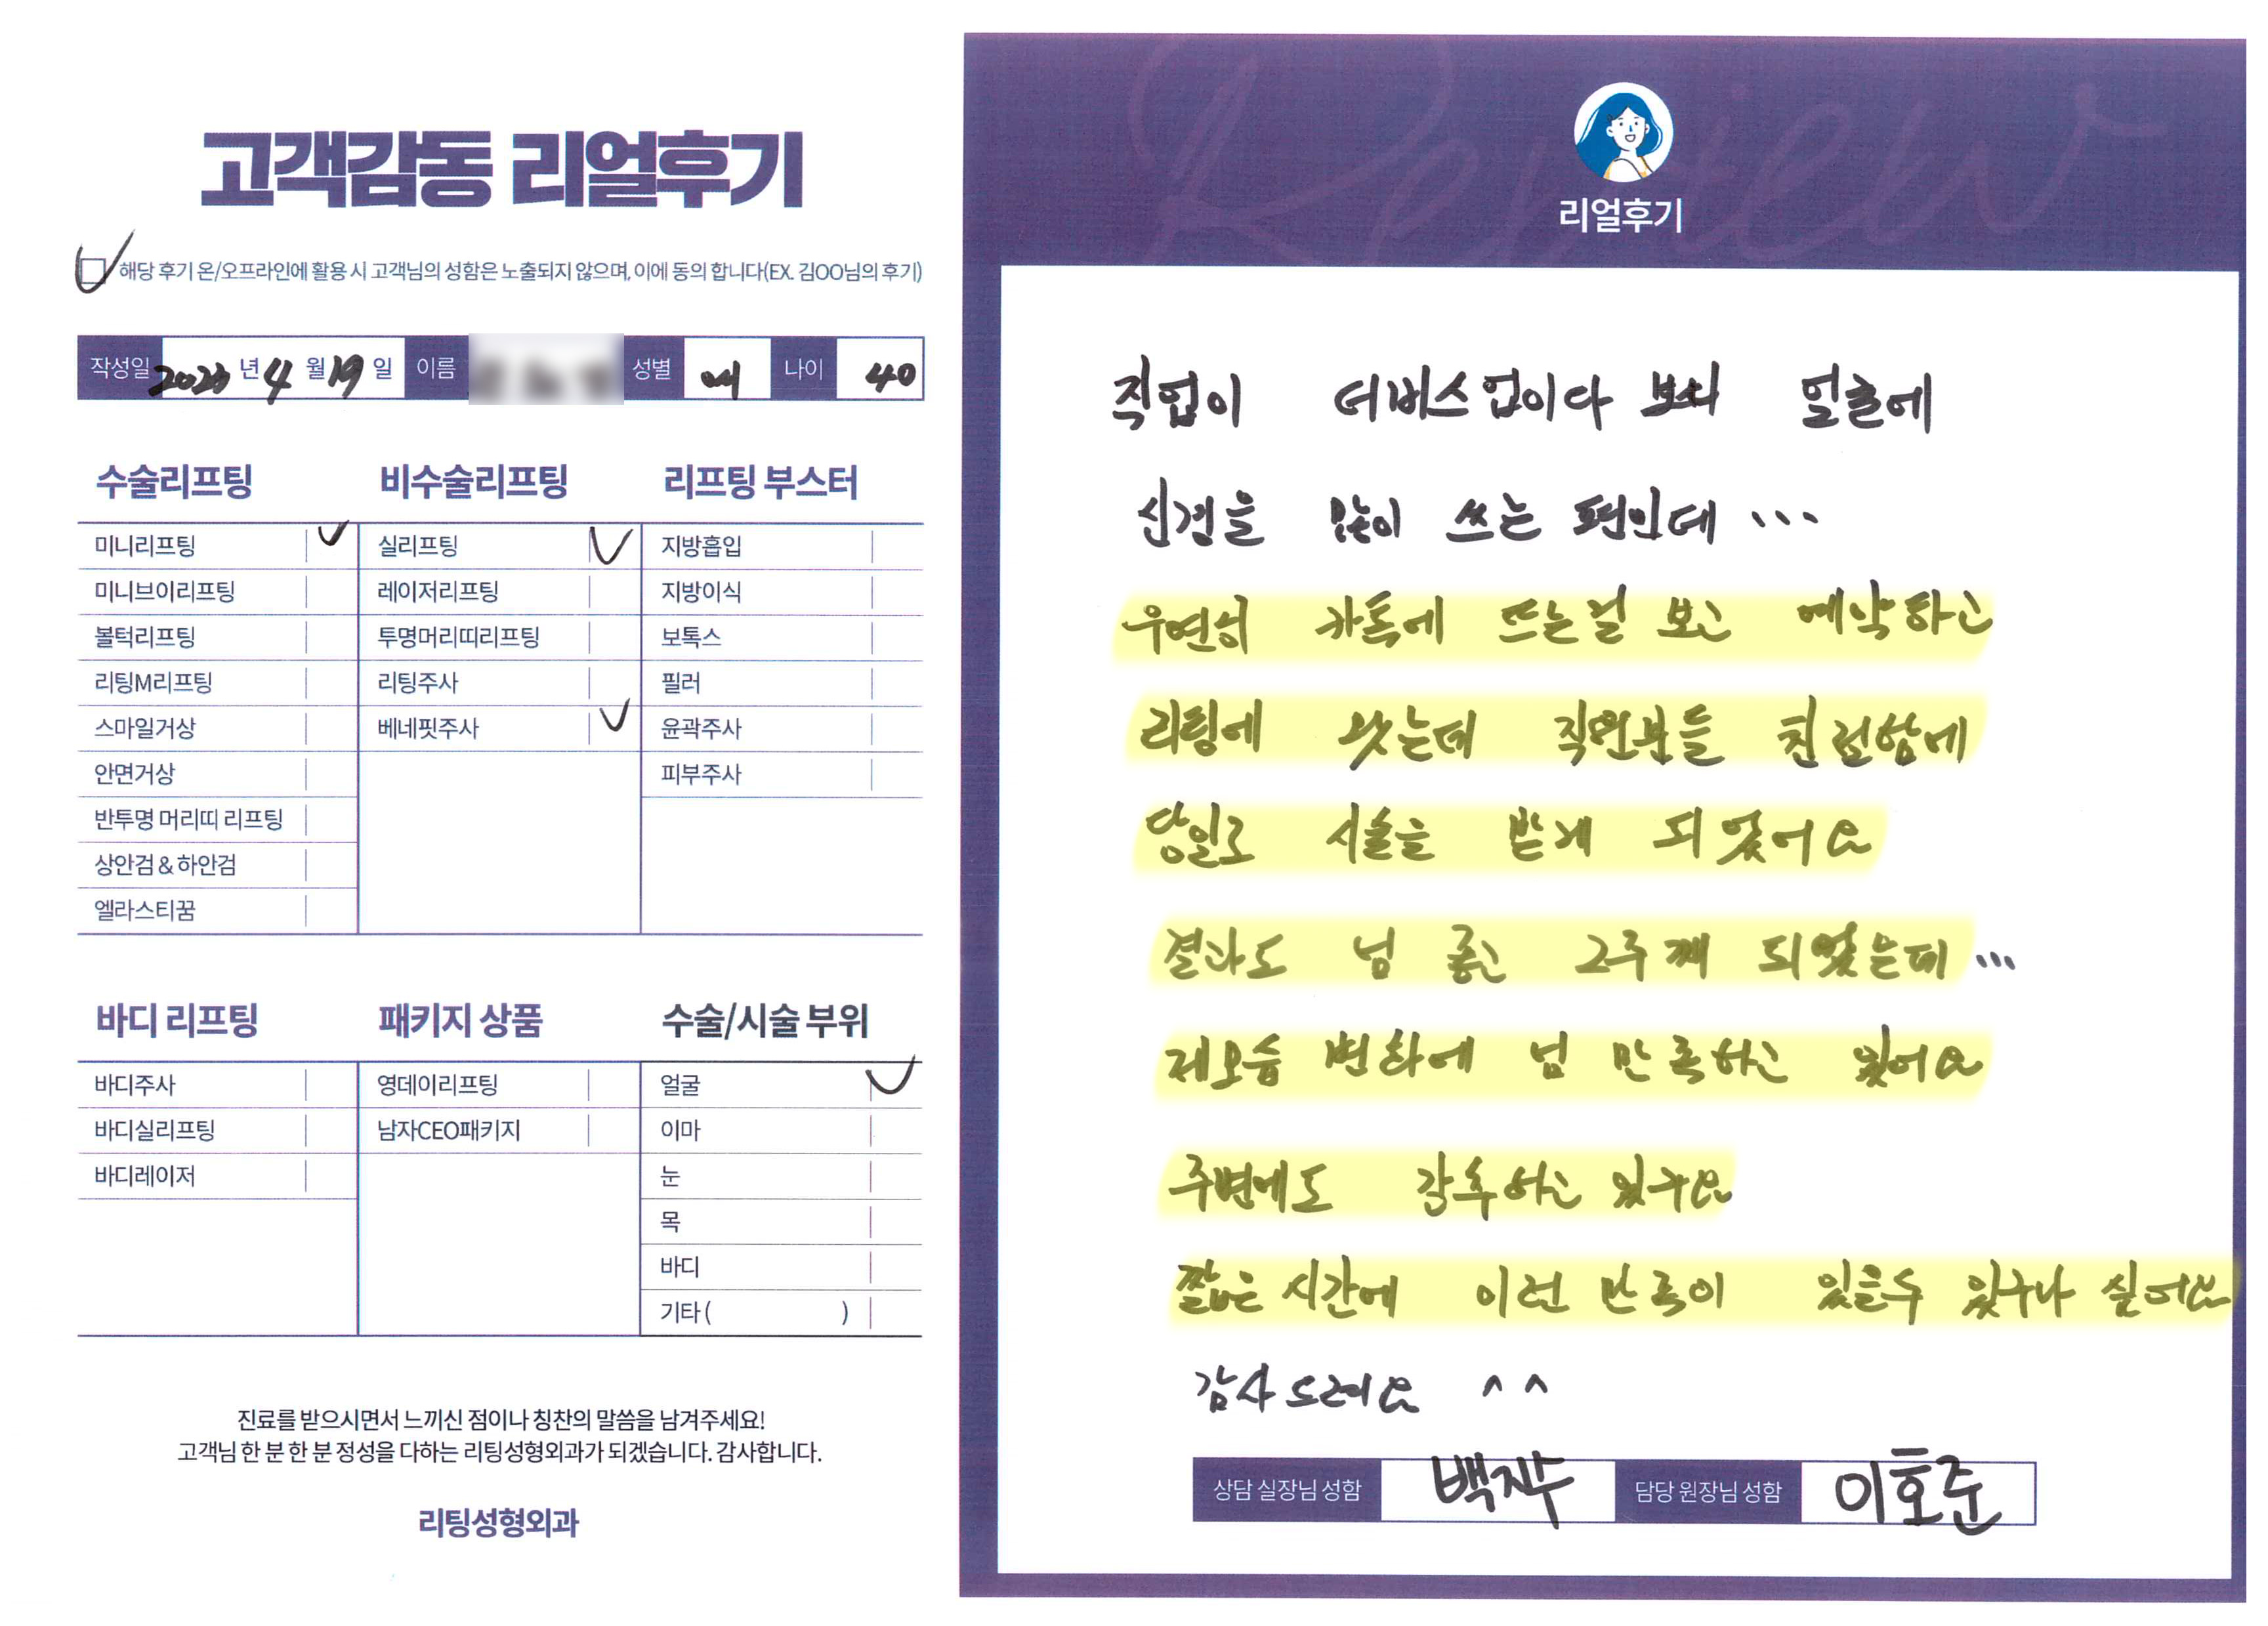 고객감동 리얼후기
해당 후기 온/오프라인에 활용 시 고객님의 성함은 노출되지 않으며, 이에 동의 합니다(EX. 김OO님의 후기)
작성일 2023년 4월 19일 이름 성별 여 나이 40
수술리프팅 비수술리프팅 리프팅 부스터
미니리프팅 실리프팅 지방흡입
미니브이리프팅 레이저리프팅 지방이식
볼턱리프팅 투명머리띠리프팅 보톡스
리팅M리프팅 리팅주사 필러
스마일거상 베네핏주사 윤곽주사
안면거상 피부주사
반투명 머리띠 리프팅
상안검 & 하안검
엘라스티꿈
바디 리프팅 패키지 상품 수술/시술 부위
바디주사 영데이리프팅 얼굴
바디실리프팅 남자CEO패키지 이마
바디레이저 눈
목
바디
기타 ( )
진료를 받으시면서 느끼신 점이나 칭찬의 말씀을 남겨주세요!
고객님 한 분 한 분 정성을 다하는 리팅성형외과가 되겠습니다. 감사합니다.
리팅성형외과
Review
리얼후기
직업이 서비스업이다 보니 얼굴에
신경을 많이 쓰는 편인데 ...
우연히 카톡에 뜨는걸 보고 예약하고
리팅에 왔는데 직원분들 친절함에
당일로 시술을 받게 되었어요
결과도 넘 좋고 2주째 되었는데 ...
제모습 변화에 넘 만족하고 있어요
주변에도 강추하고 있구요
짧은 시간에 이런 만족이 있을수 있구나 싶어요
감사드려요 ^^
상담 실장님 성함 백지수 담당 원장님 성함 이호준